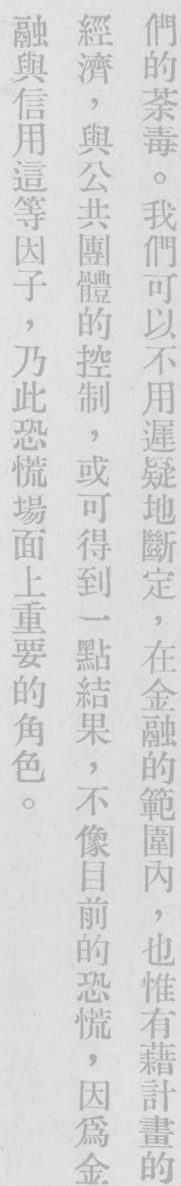 們的荼毒。我們可以不用遲疑地斷定，在金融的範圍內，也惟有藉計畫的
經濟，與公共團體的控制，或可得到一點結果，不像目前的恐慌，因爲金
融與信用這等因子，乃此恐慌場面上重要的角色。